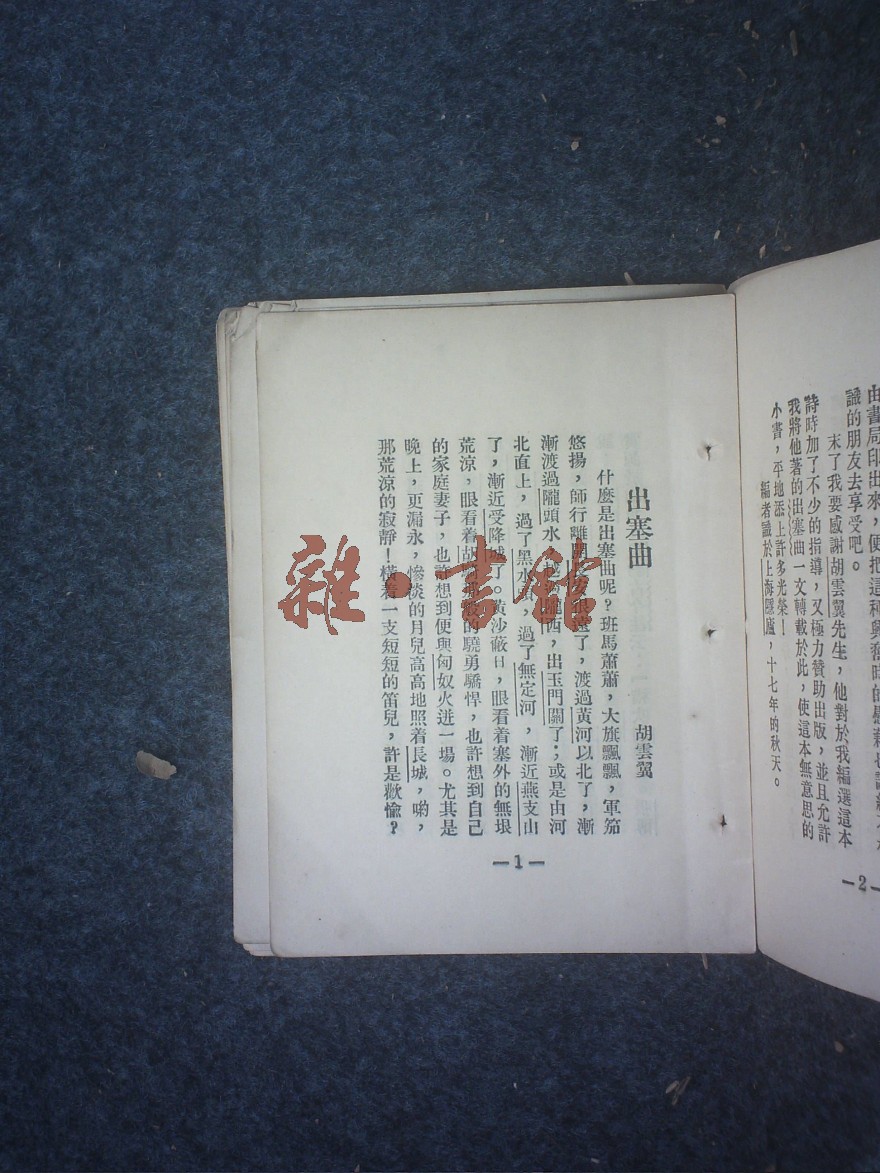 由書局印出來，便把這種興奮時的
識的朋友去享受吧。
末了我要感謝胡雲翼先生，他對於我編選這本
詩時加了不少的指導，又極力贊助出版，並且允許
我將他著的出塞曲一文轉載於此，使這本無意思的
小書，平地添上許多光榮！
編者識於上海隱廬，十七年的秋天。
—2—
出塞曲
胡雲翼
什麼是出塞曲呢？班馬蕭蕭，大旗飄飄，軍笳
悠揚，師行離開長安很遠了，渡過黃河以北了，漸
漸渡過隴頭水，越過隴西，出玉門關了；或是由河
北直上，過了黑水，過了無定河，漸近燕支山
了，漸近受降城了。黃沙蔽日，眼看着塞外的無垠
荒涼，眼看着胡的驍勇驕悍，也許想到自己
的家庭妻子，也許想到便與匈奴火迸一場。尤其是
晚上，更漏永，慘淡的月兒高高地照着長城，喲，
那荒涼的寂靜！橫着一支短短的笛兒，許是歡愉？
—1—
雜·書館